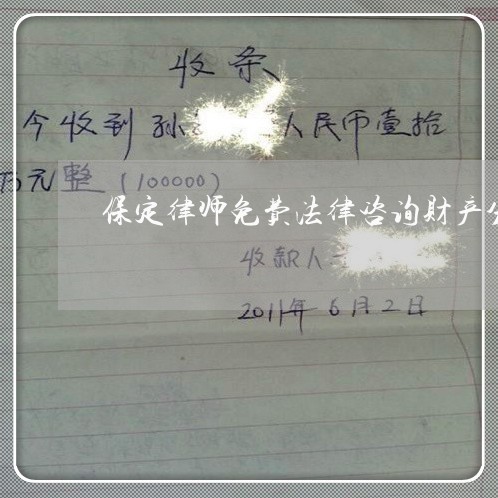 收条
今收到孙 人民币壹拾
万元整(100000)
保定律师免费法律咨询财产分
收款人
2011年6月2日